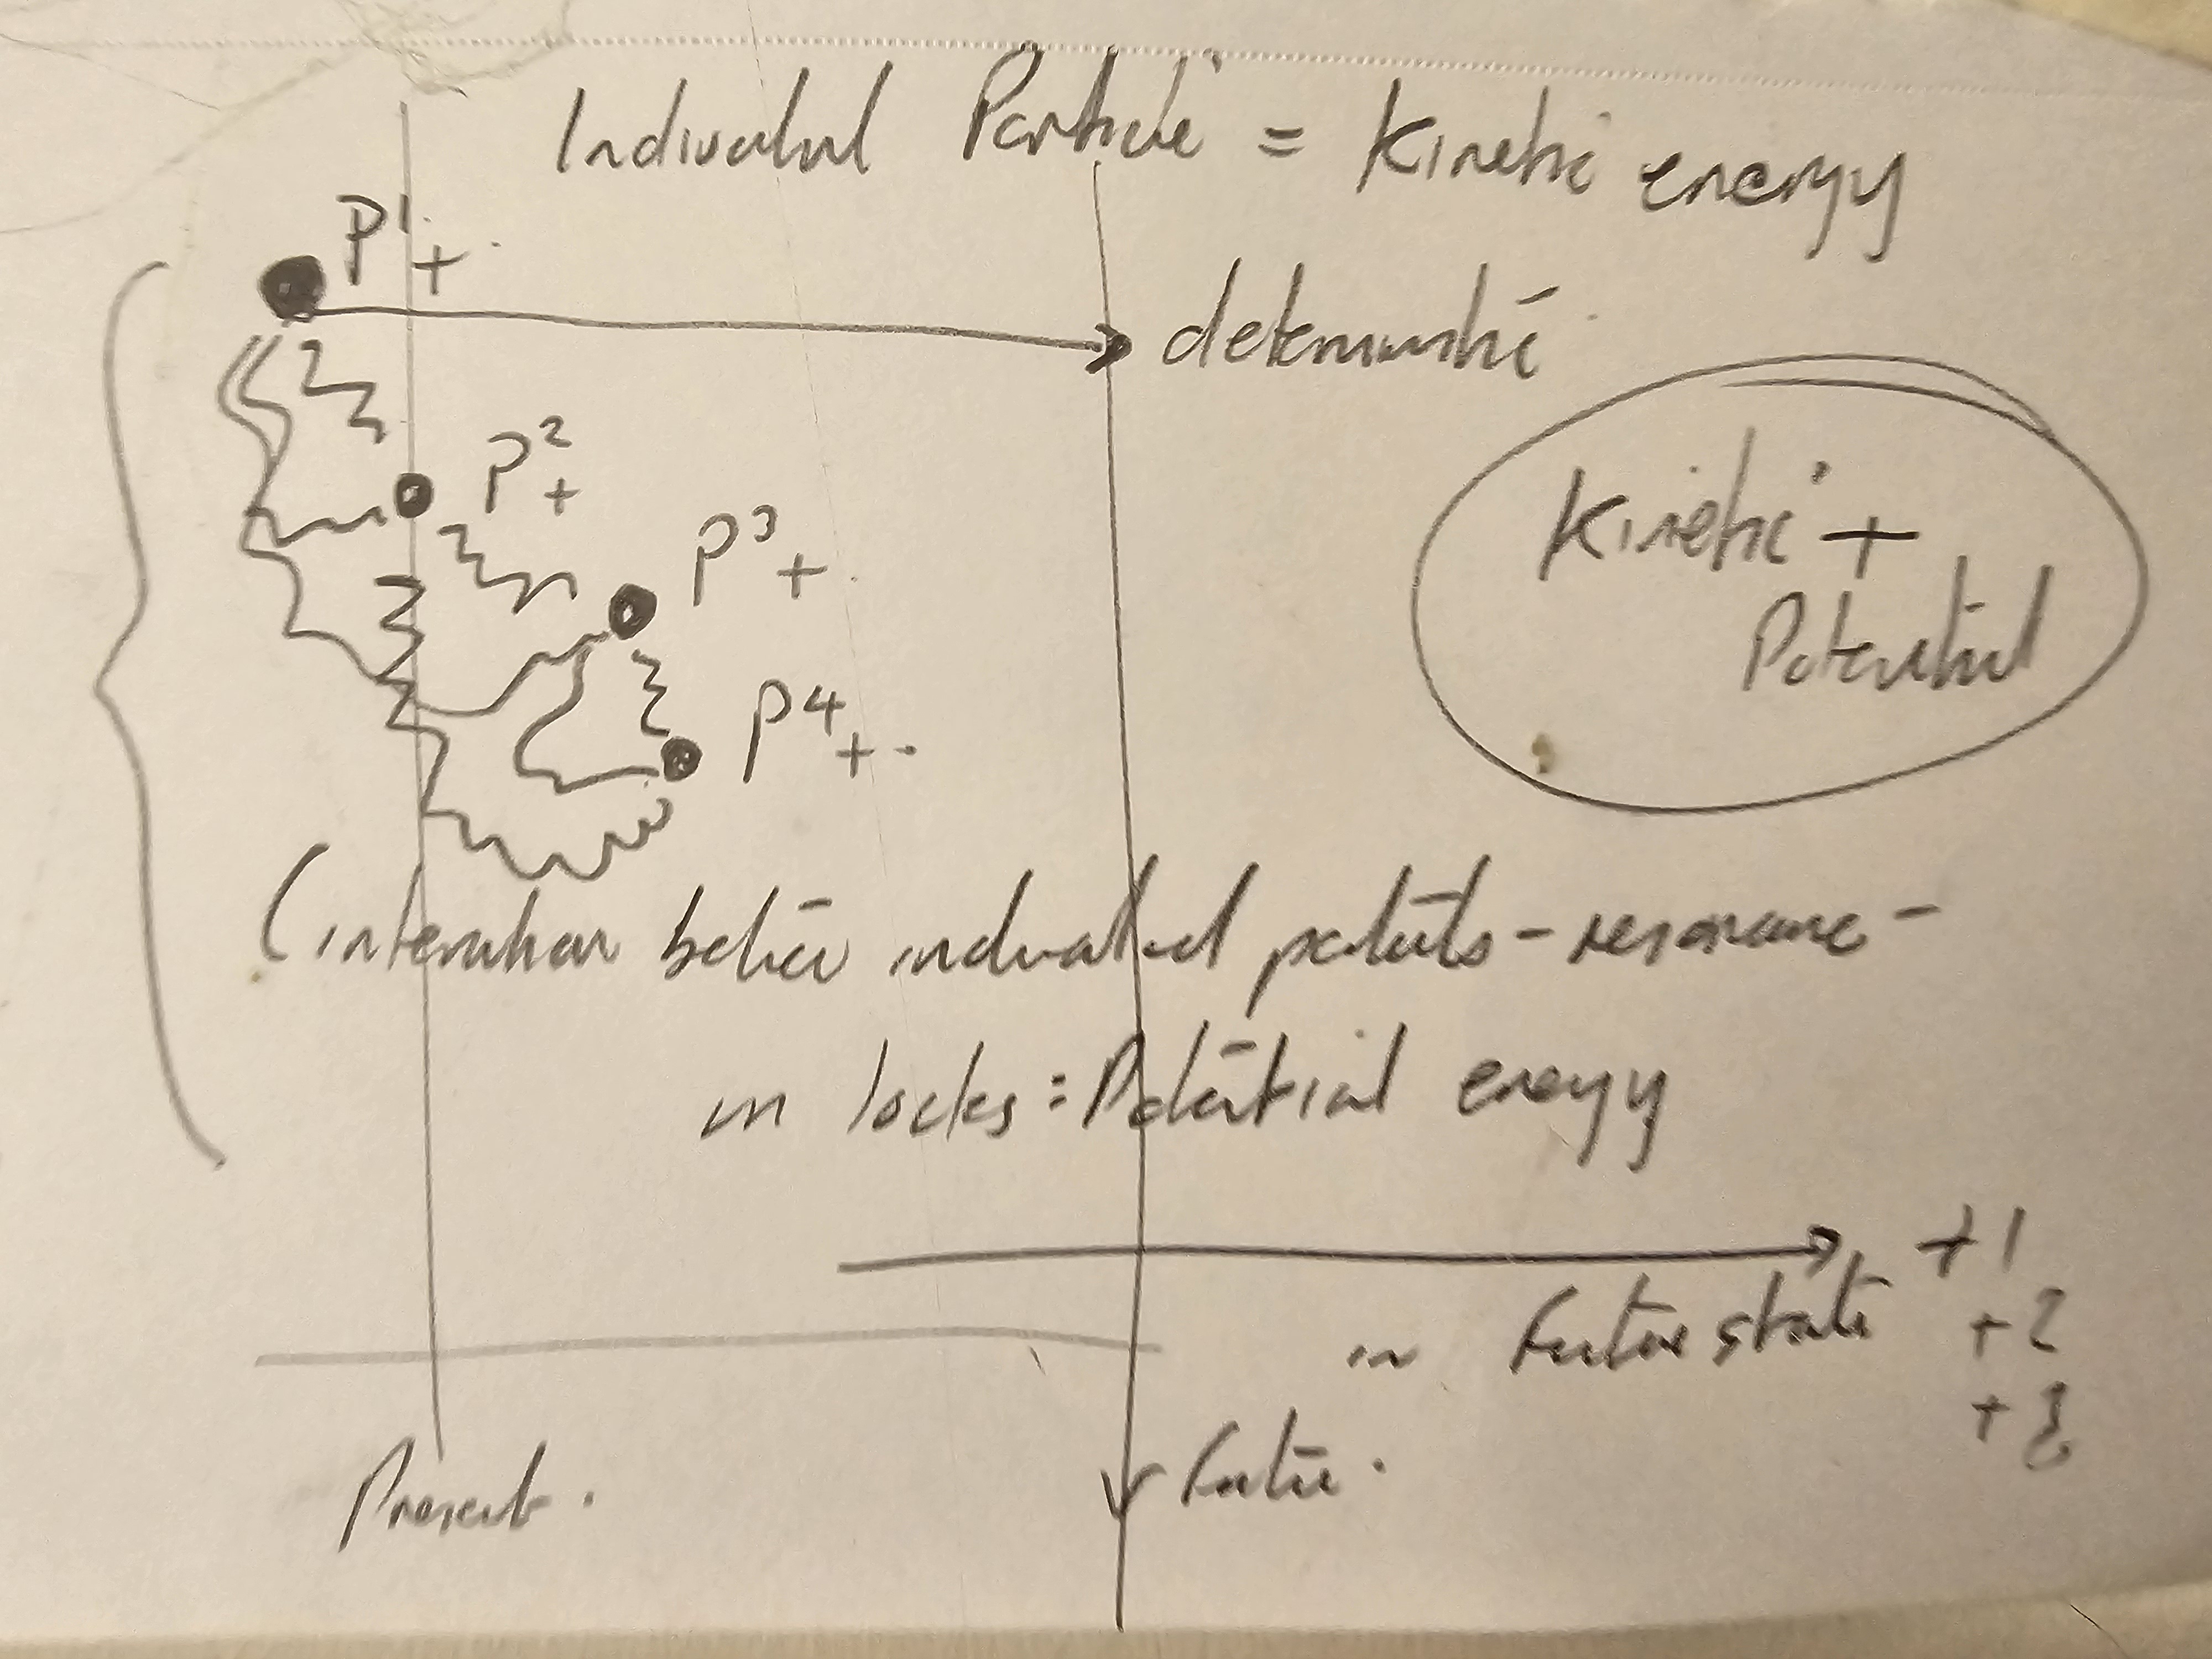 Individual Particle = Kinetic energy
P1+
deterministic
P2+
P3+
Kinetic +
Potential
P4+
(interaction between individual particles - resonance -
in locks = Potential energy
+1
in Future state
+2
+3
Present.
Future.